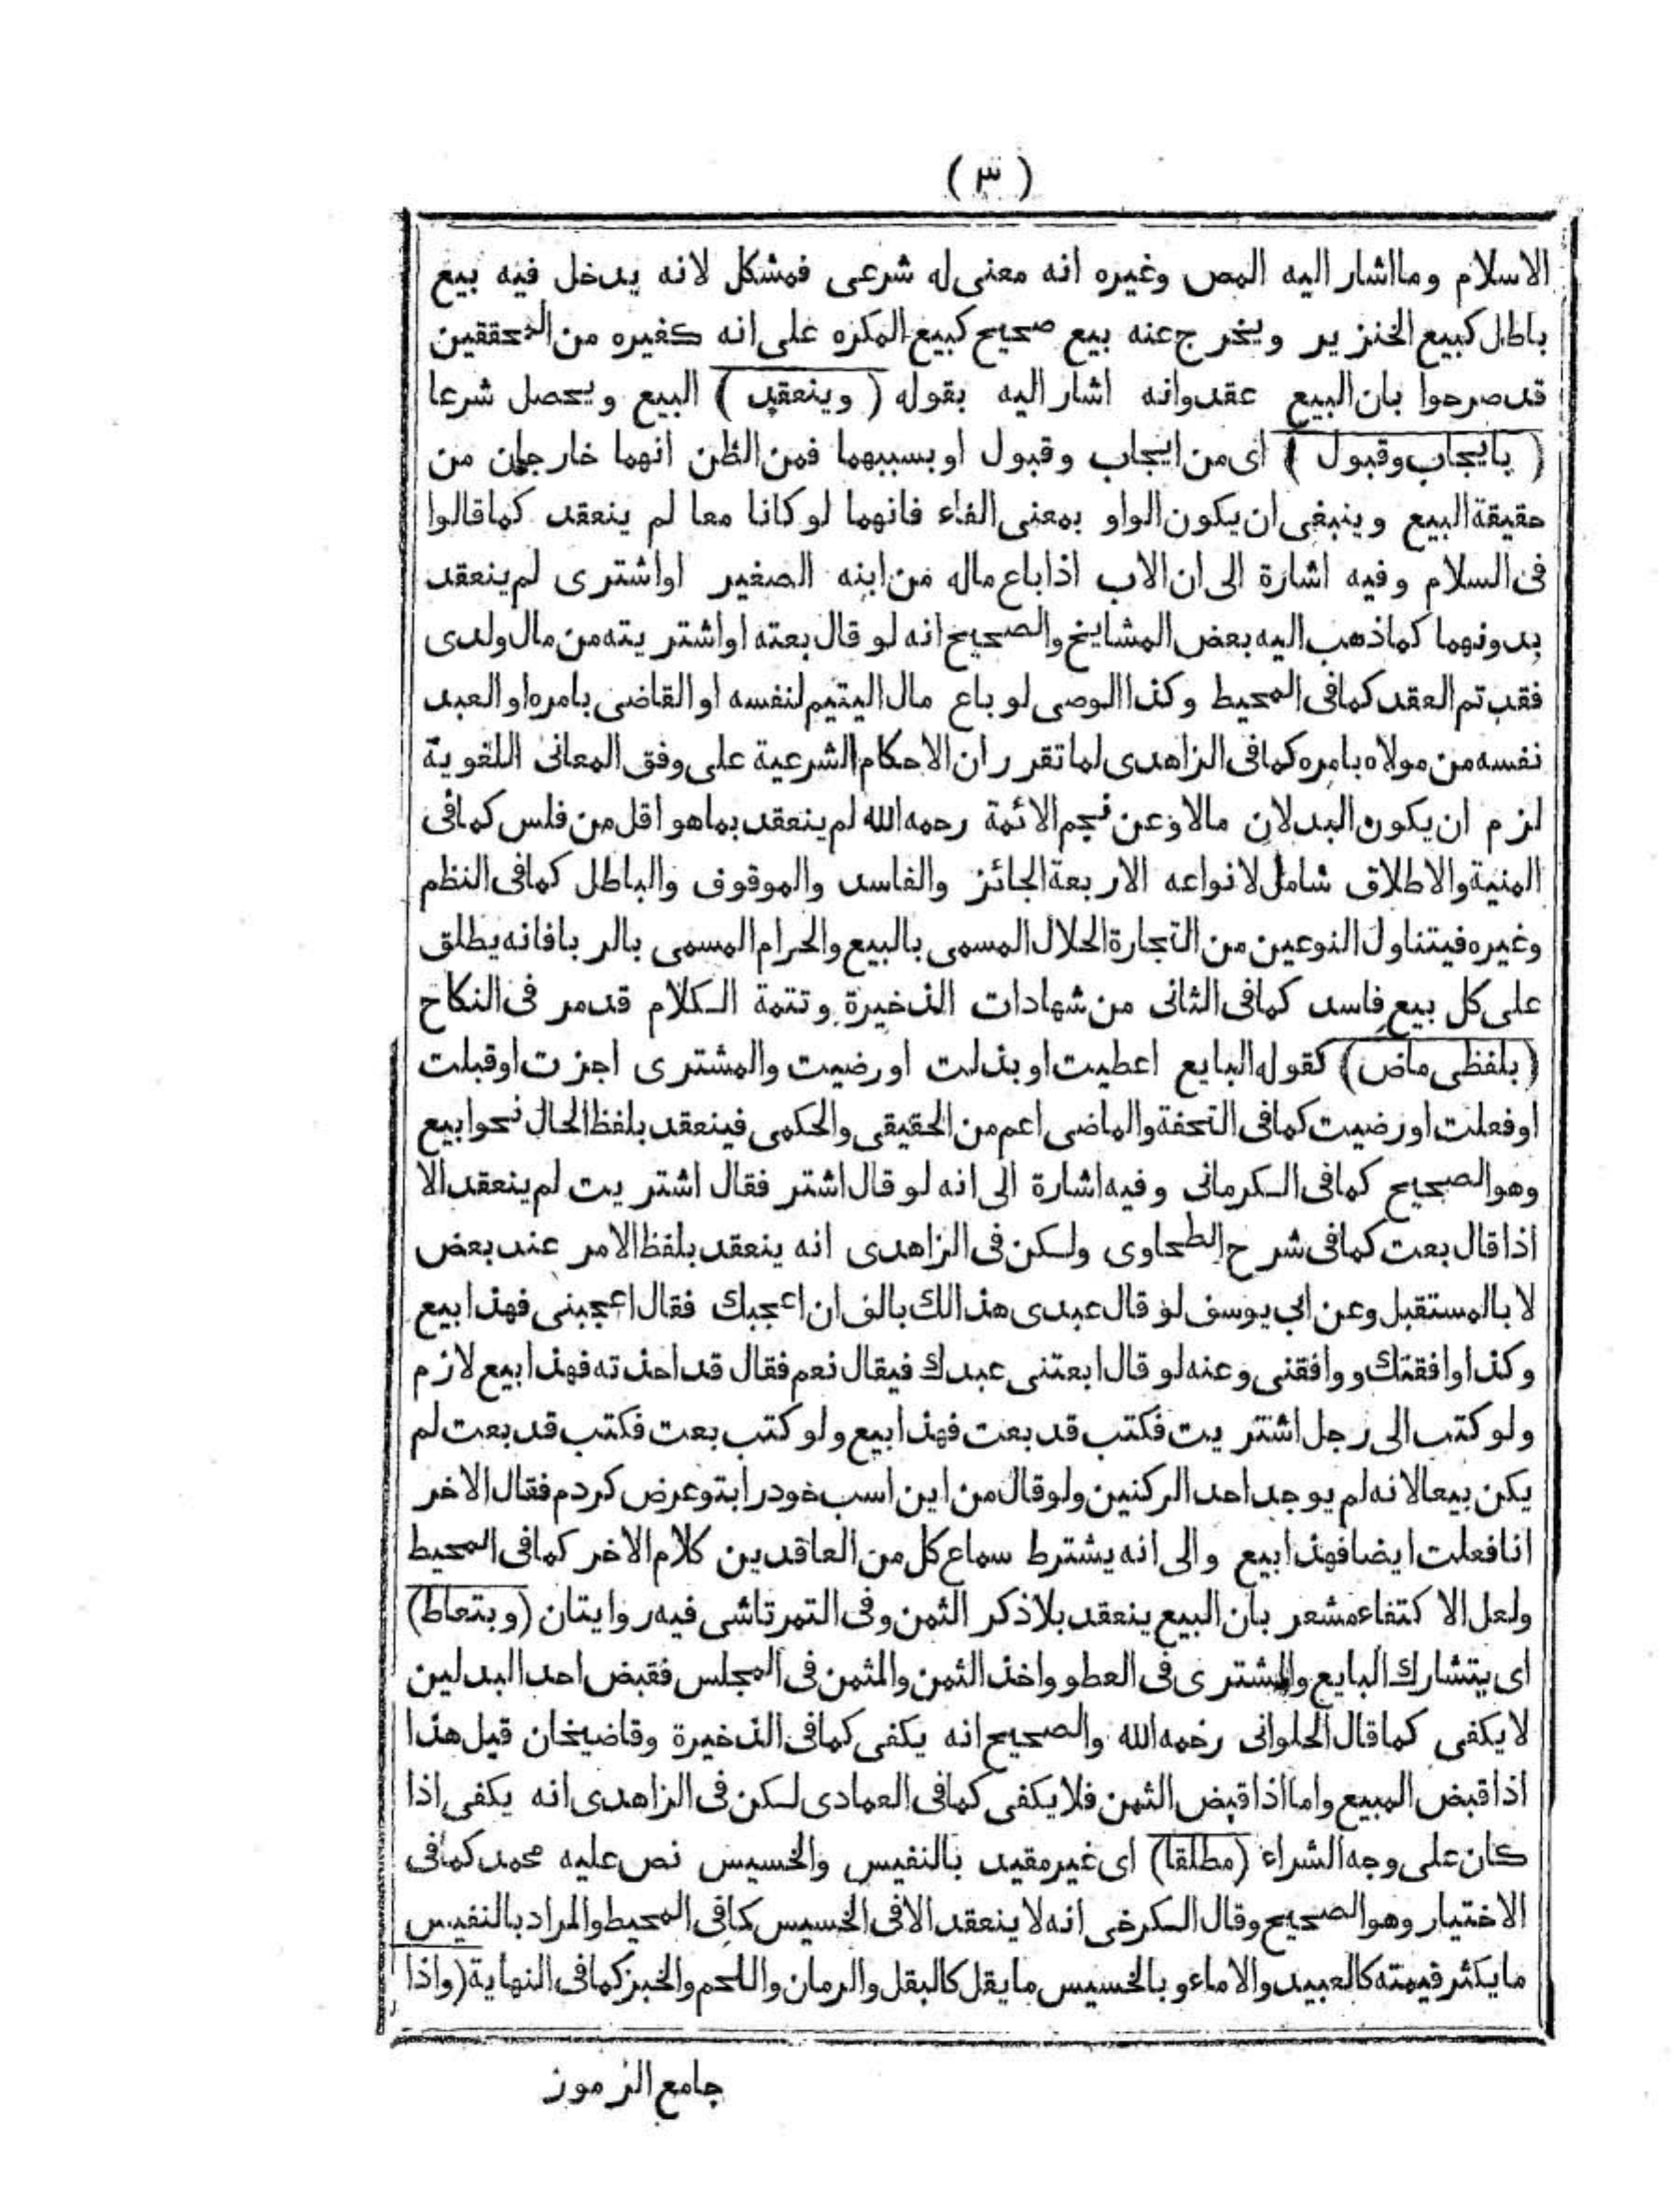 (٣)
الاسلام وما اشار اليه المص وغيره انه معنى له شرعى فمشكل لانه يدخل فيه بيع
باطل كبيع الخنزير ويخرج عنه بيع صحيح كبيع المكره على انه كغيره من المحققين
قد صرحوا بان البيع عقد وانه اشار اليه بقوله (وينعقد) البيع ويحصل شرعا
(بايجاب وقبول) اى من ايجاب وقبول او بسببهما فمن الظن انهما خارجان من
حقيقة البيع وينبغى ان يكون الواو بمعنى الفاء فانهما لو كانا معا لم ينعقد كما قالوا
فى السلام وفيه اشارة الى ان الاب اذا باع ماله من ابنه الصغير او اشترى لم ينعقد
بدونهما كما ذهب اليه بعض المشايخ والصحيح انه لو قال بعته او اشتريته من مال ولدى
فقد تم العقد كما فى المحيط وكذا الوصى لو باع مال اليتيم لنفسه او القاضى بامره او العبد
نفسه من مولاه بامره كما فى الزاهدى لما تقرر ان الاحكام الشرعية على وفق المعانى اللغوية
لزم ان يكون البدلان مالا وعن نجم الائمة رحمه الله لم ينعقد بما هو اقل من فلس كما فى
المنية والاطلاق شامل لانواعه الاربعة الجائز والفاسد والموقوف والباطل كما فى النظم
وغيره فيتناول النوعين من التجارة الحلال المسمى بالبيع والحرام المسمى بالربا فانه يطلق
على كل بيع فاسد كما فى الثانى من شهادات الذخيرة وتتمة الكلام قد مر فى النكاح
(بلفظى ماض) كقول البايع اعطيت او بذلت او رضيت والمشترى اجزت او قبلت
او فعلت او رضيت كما فى التحفة والماضى اعم من الحقيقى والحكمى فينعقد بلفظ الحال نحو ابيع
وهو الصحيح كما فى الكرمانى وفيه اشارة الى انه لو قال اشتر فقال اشتريت لم ينعقد الا
اذا قال بعت كما فى شرح الطحاوى ولكن فى الزاهدى انه ينعقد بلفظ الامر عند بعض
لا بالمستقبل وعن ابى يوسف لو قال عبدى هذا لك بالف ان اعجبك فقال اعجبنى فهذا بيع
وكذا وافقتك ووافقنى وعنه لو قال ابعتنى عبدك فيقال نعم فقال قد اخذته فهذا بيع لازم
ولو كتب الى رجل اشتريت فكتب قد بعت فهذا بيع ولو كتب بعت فكتب قد بعت لم
يكن بيعا لانه لم يوجد احد الركنين ولو قال من اين اسب خود را بتو عرض كردم فقال الاخر
انا فعلت ايضا فهذا بيع والى انه يشترط سماع كل من العاقدين كلام الاخر كما فى المحيط
ولعل الاكتفاء مشعر بان البيع ينعقد بلا ذكر الثمن وفى التمرتاشى فيه روايتان (وبتعاط)
اى يتشارك البايع والمشترى فى العطو واخذ الثمن والمثمن فى المجلس فقبض احد البدلين
لا يكفى كما قال الحلوانى رحمه الله والصحيح انه يكفى كما فى الذخيرة وقاضيخان قيل هذا
اذا قبض المبيع واما اذا قبض الثمن فلا يكفى كما فى العمادى لكن فى الزاهدى انه يكفى اذا
كان على وجه الشراء (مطلقا) اى غير مقيد بالنفيس والخسيس نص عليه محمد كما فى
الاختيار وهو الصحيح وقال الكرخى انه لا ينعقد الا فى الخسيس كما فى المحيط والمراد بالنفيس
ما يكثر قيمته كالعبيد والاماء وبالخسيس ما يقل كالبقل والرمان واللحم والخبز كما فى النهاية (واذا
جامع الرموز